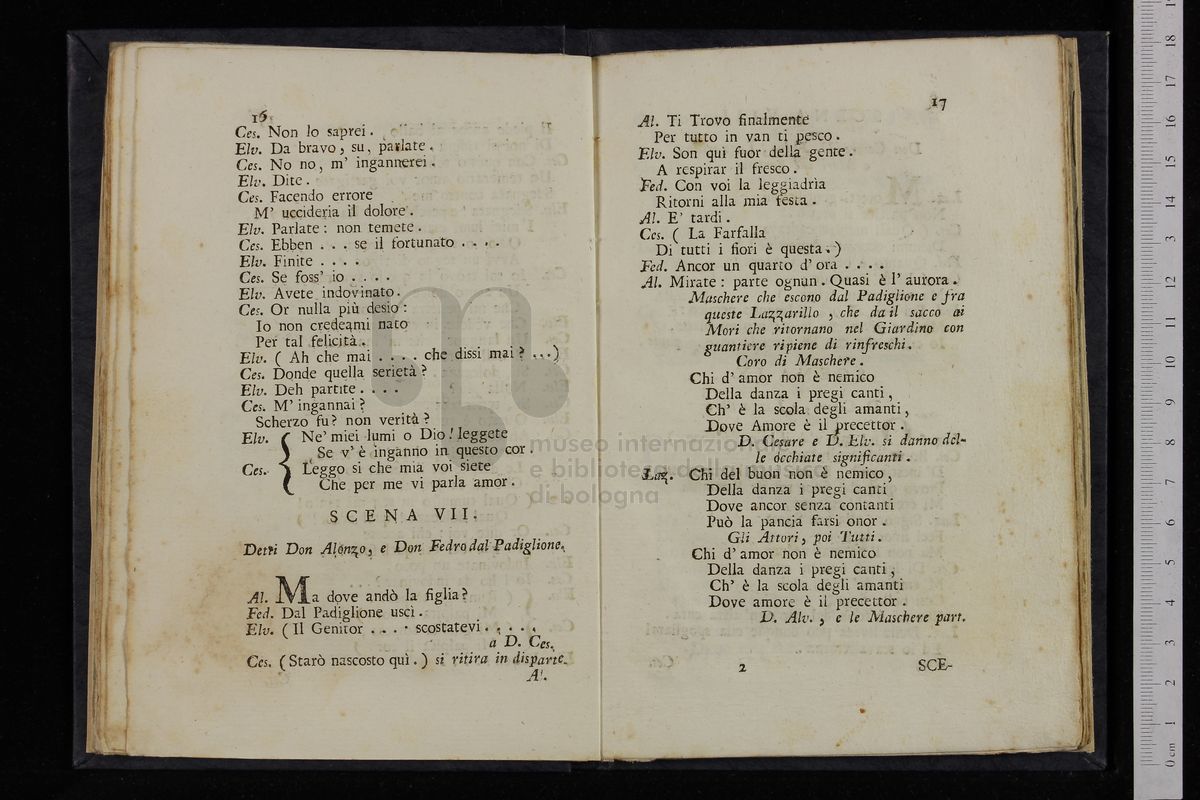 16
Ces. Non lo saprei.
Elv. Da bravo, su, parlate.
Ces. No no, m' ingannerei.
Elv. Dite.
Ces. Facendo errore
M' uccideria il dolore.
Elv. Parlate: non temete.
Ces. Ebben . . . se il fortunato . . . .
Elv. Finite . . . .
Ces. Se foss' io . . . .
Elv. Avete indovinato.
Ces. Or nulla più desio:
Io non credeami nato
Per tal felicità.
Elv. ( Ah che mai . . . . che dissi mai? ...)
Ces. Donde quella serietà?
Elv. Deh partite . . . .
Ces. M' ingannai?
Scherzo fu? non verità?
Elv. { Ne' miei lumi o Dio! leggete
Se v' è inganno in questo cor.
Ces. Leggo si che mia voi siete
Che per me vi parla amor.
SCENA VII.
Detti Don Alonzo, e Don Fedro dal Padiglione.
Al. Ma dove andò la figlia?
Fed. Dal Padiglione uscì.
Elv. (Il Genitor . . . . scostatevi . . . . .
a D. Ces.
Ces. (Starò nascosto quì.) si ritira in disparte.
Al.
17
Al. Ti Trovo finalmente
Per tutto in van ti pesco.
Elv. Son quì fuor della gente.
A respirar il fresco.
Fed. Con voi la leggiadrìa
Ritorni alla mia festa.
Al. E' tardi.
Ces. ( La Farfalla
Di tutti i fiori è questa.)
Fed. Ancor un quarto d' ora . . . .
Al. Mirate: parte ognun. Quasi è l' aurora.
Maschere che escono dal Padiglione e fra
queste Lazzarillo, che da il sacco ai
Mori che ritornano nel Giardino con
guantiere ripiene di rinfreschi.
Coro di Maschere.
Chi d' amor non è nemico
Della danza i pregi canti,
Ch' è la scola degli amanti,
Dove Amore è il precettor.
D. Cesare e D. Elv. si danno del-
le occhiate significanti.
Laz. Chi del buon non è nemico,
Della danza i pregi canti
Dove ancor senza contanti
Può la pancia farsi onor.
Gli Attori, poi Tutti.
Chi d' amor non è nemico
Della danza i pregi canti,
Ch' è la scola degli amanti
Dove amore è il precettor.
D. Alv., e le Maschere part.
2
SCE-
museo internazionale
e biblioteca della musica
di bologna